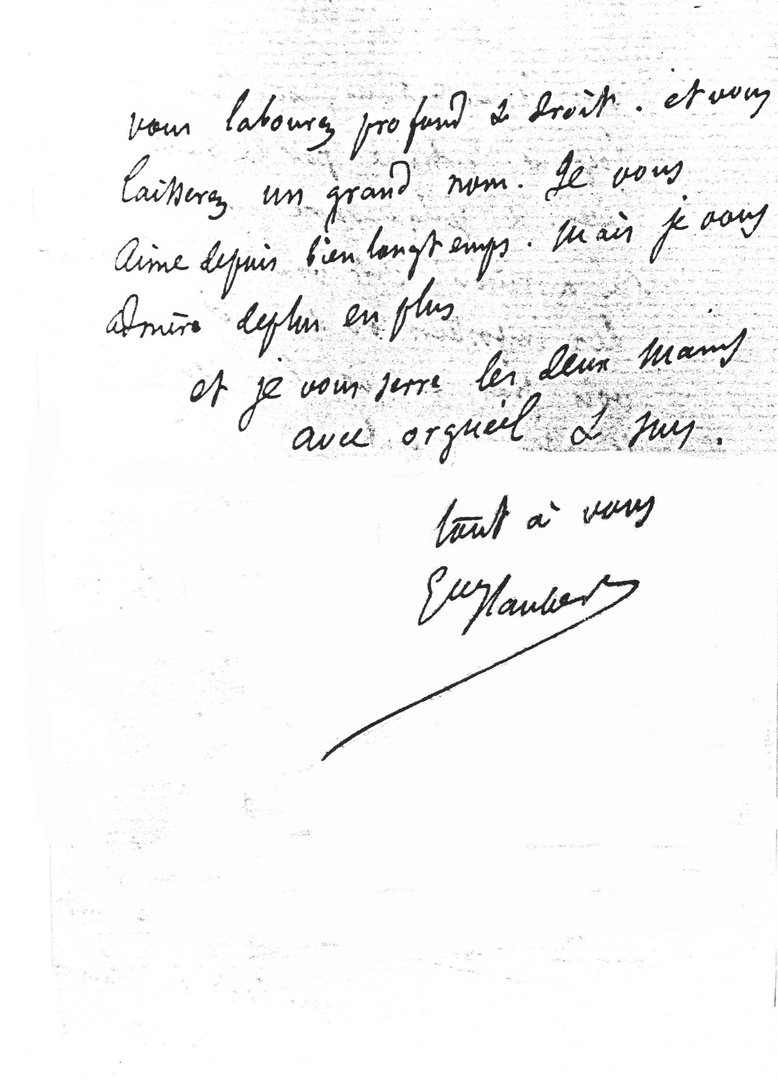 vous labourez profond & droit. et vous
laisserez un grand nom. Je vous
aime depuis bien longtemps. Mais je vous
admire deplus en plus
et je vous serre les deux mains
avec orgueil & suis.
tout à vous
Gve Flaubert